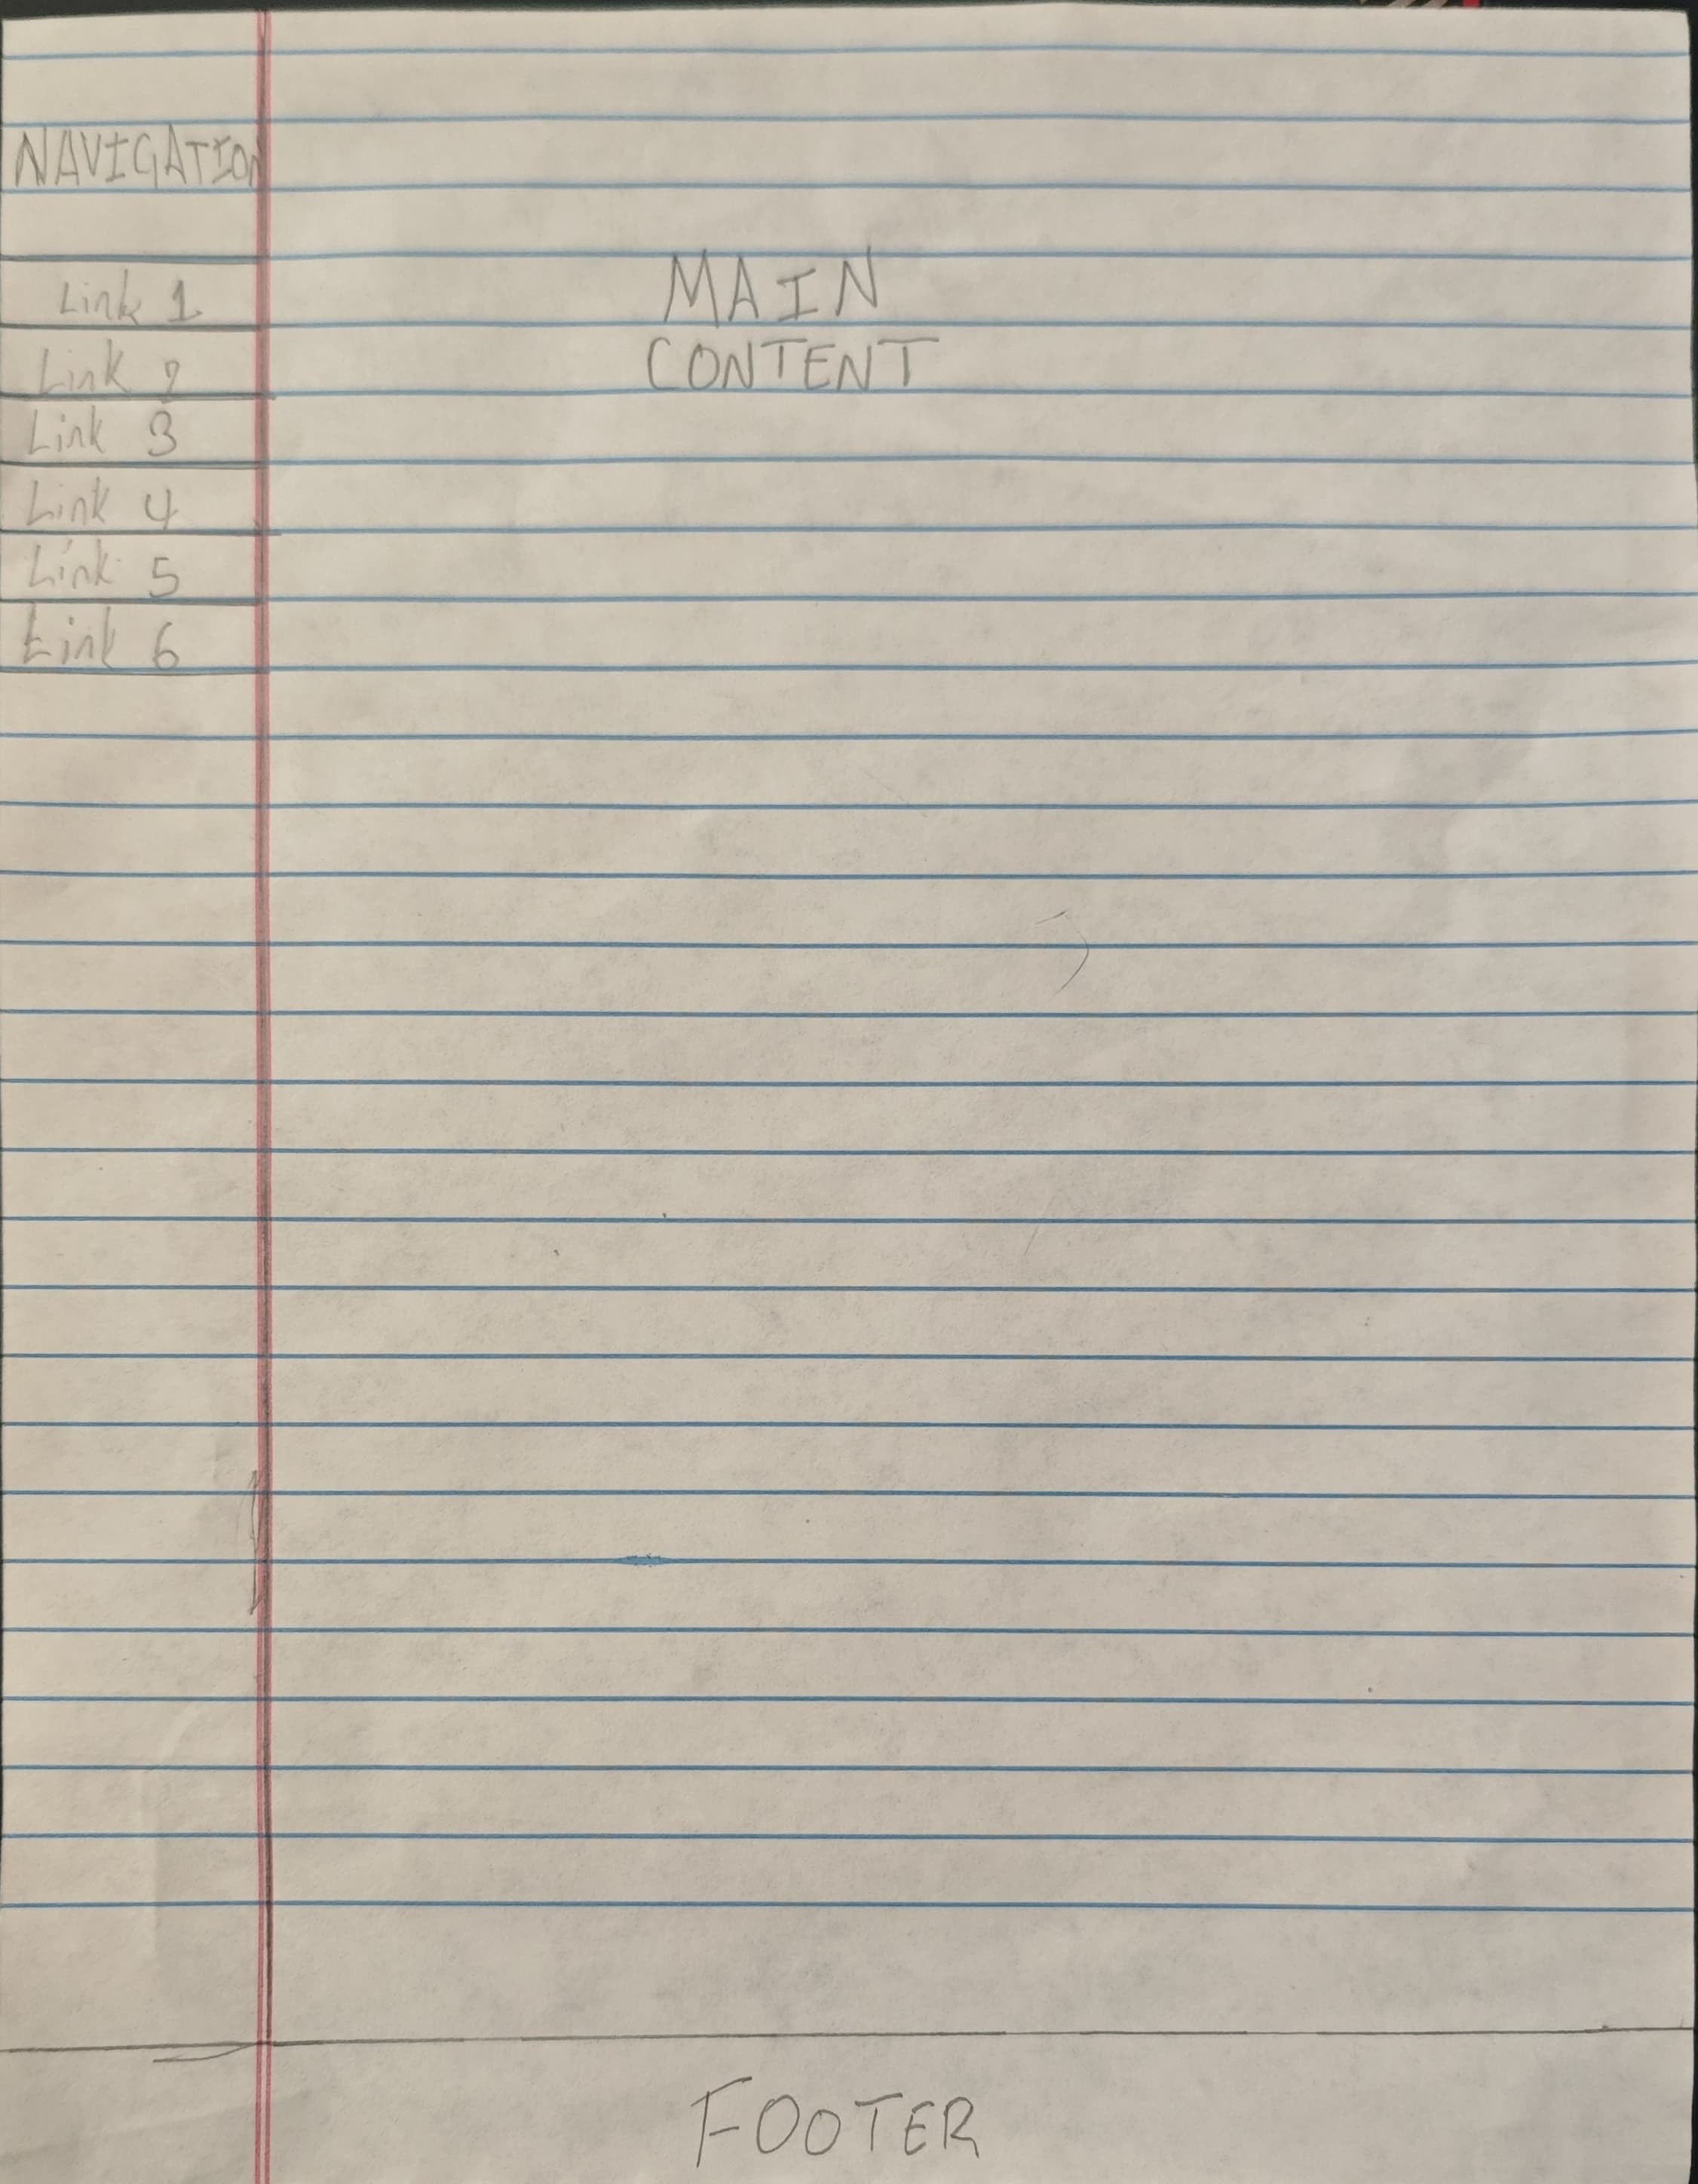 NAVIGATION
Link 1
Link 2
Link 3
Link 4
Link 5
Link 6
MAIN
CONTENT
FOOTER